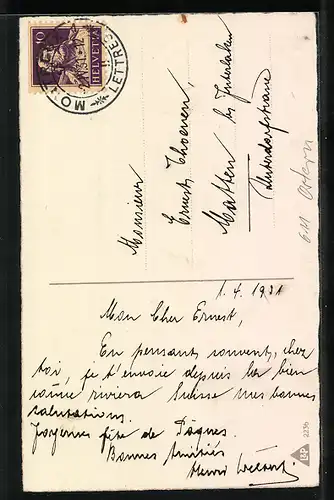 10
HELVETIA
LETTRES
Monsieur
Ernest Thoenen,
Matten bei Interlaken
Unterdorfstrasse
611 Ostern
1. 4. 1931
Mon Cher Ernest,
En pensant souvent, chez
toi, je t'envoie depuis la bien
riviera Suisse mes bonnes
salutations.
fête de Pâques.
Bonnes Amitiés
Henri
2236